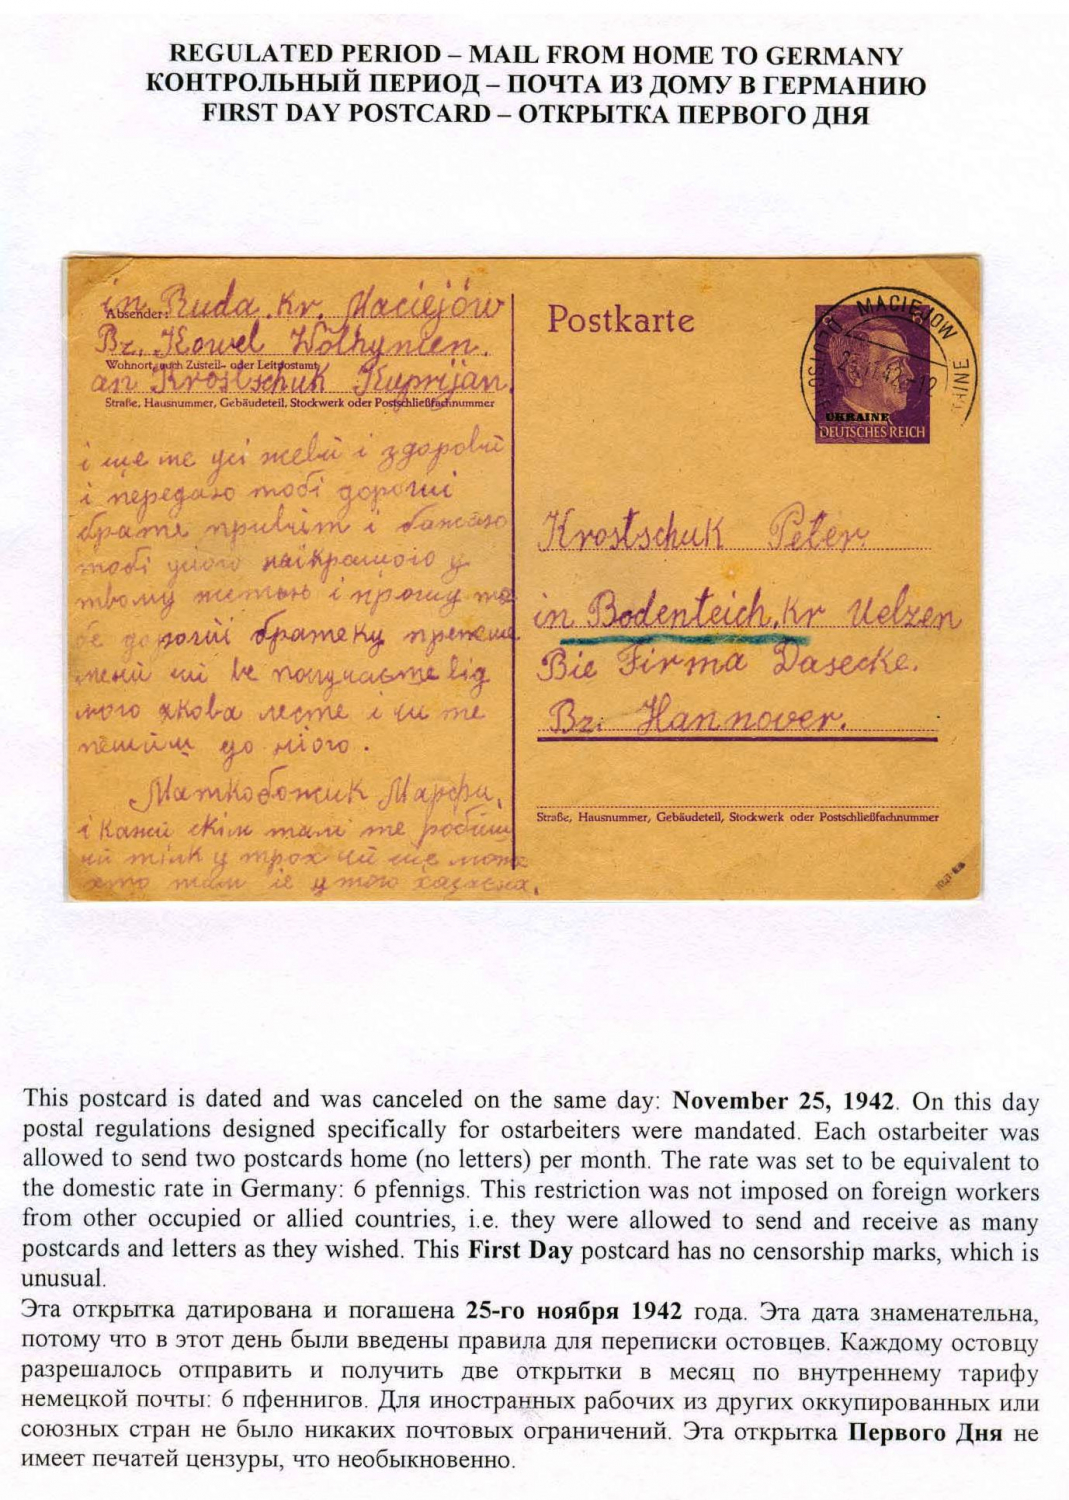 REGULATED PERIOD – MAIL FROM HOME TO GERMANY
КОНТРОЛЬНЫЙ ПЕРИОД – ПОЧТА ИЗ ДОМУ В ГЕРМАНИЮ
FIRST DAY POSTCARD – ОТКРЫТКА ПЕРВОГО ДНЯ
in Ruda. Kr. Maciejów
Absender:
Bz. Kowel Wolhynien.
Wohnort, auch Zustell- oder Leitpostamt
an Krostschuk Kuprijan.
Straße, Hausnummer, Gebäudeteil, Stockwerk oder Postschließfachnummer
і ше ме усі жеві і здорові
і передаю тобі дорогиі
брате привіт і бажаю
тобі усього найкращого у
твому і прошу те
бе дорогиі братеку
мені чи ве получаєте від
мого якова лесте і чи те
до нього.
Маткобожик Марфи.
і кажи скіл там те робиш
Postkarte
MACIEJOW
UKRAINE
DEUTSCHES REICH
Krostschuk Peter.
in Bodenteich. Kr Uelzen
Bie Firma Dasecke.
Bz. Hannover.
Straße, Hausnummer, Gebäudeteil, Stockwerk oder Postschließfachnummer
This postcard is dated and was canceled on the same day: November 25, 1942. On this day
postal regulations designed specifically for ostarbeiters were mandated. Each ostarbeiter was
allowed to send two postcards home (no letters) per month. The rate was set to be equivalent to
the domestic rate in Germany: 6 pfennigs. This restriction was not imposed on foreign workers
from other occupied or allied countries, i.e. they were allowed to send and receive as many
postcards and letters as they wished. This First Day postcard has no censorship marks, which is
unusual.
Эта открытка датирована и погашена 25-го ноября 1942 года. Эта дата знаменательна,
потому что в этот день были введены правила для переписки остовцев. Каждому остовцу
разрешалось отправить и получить две открытки в месяц по внутреннему тарифу
немецкой почты: 6 пфеннигов. Для иностранных рабочих из других оккупированных или
союзных стран не было никаких почтовых ограничений. Эта открытка Первого Дня не
имеет печатей цензуры, что необыкновенно.